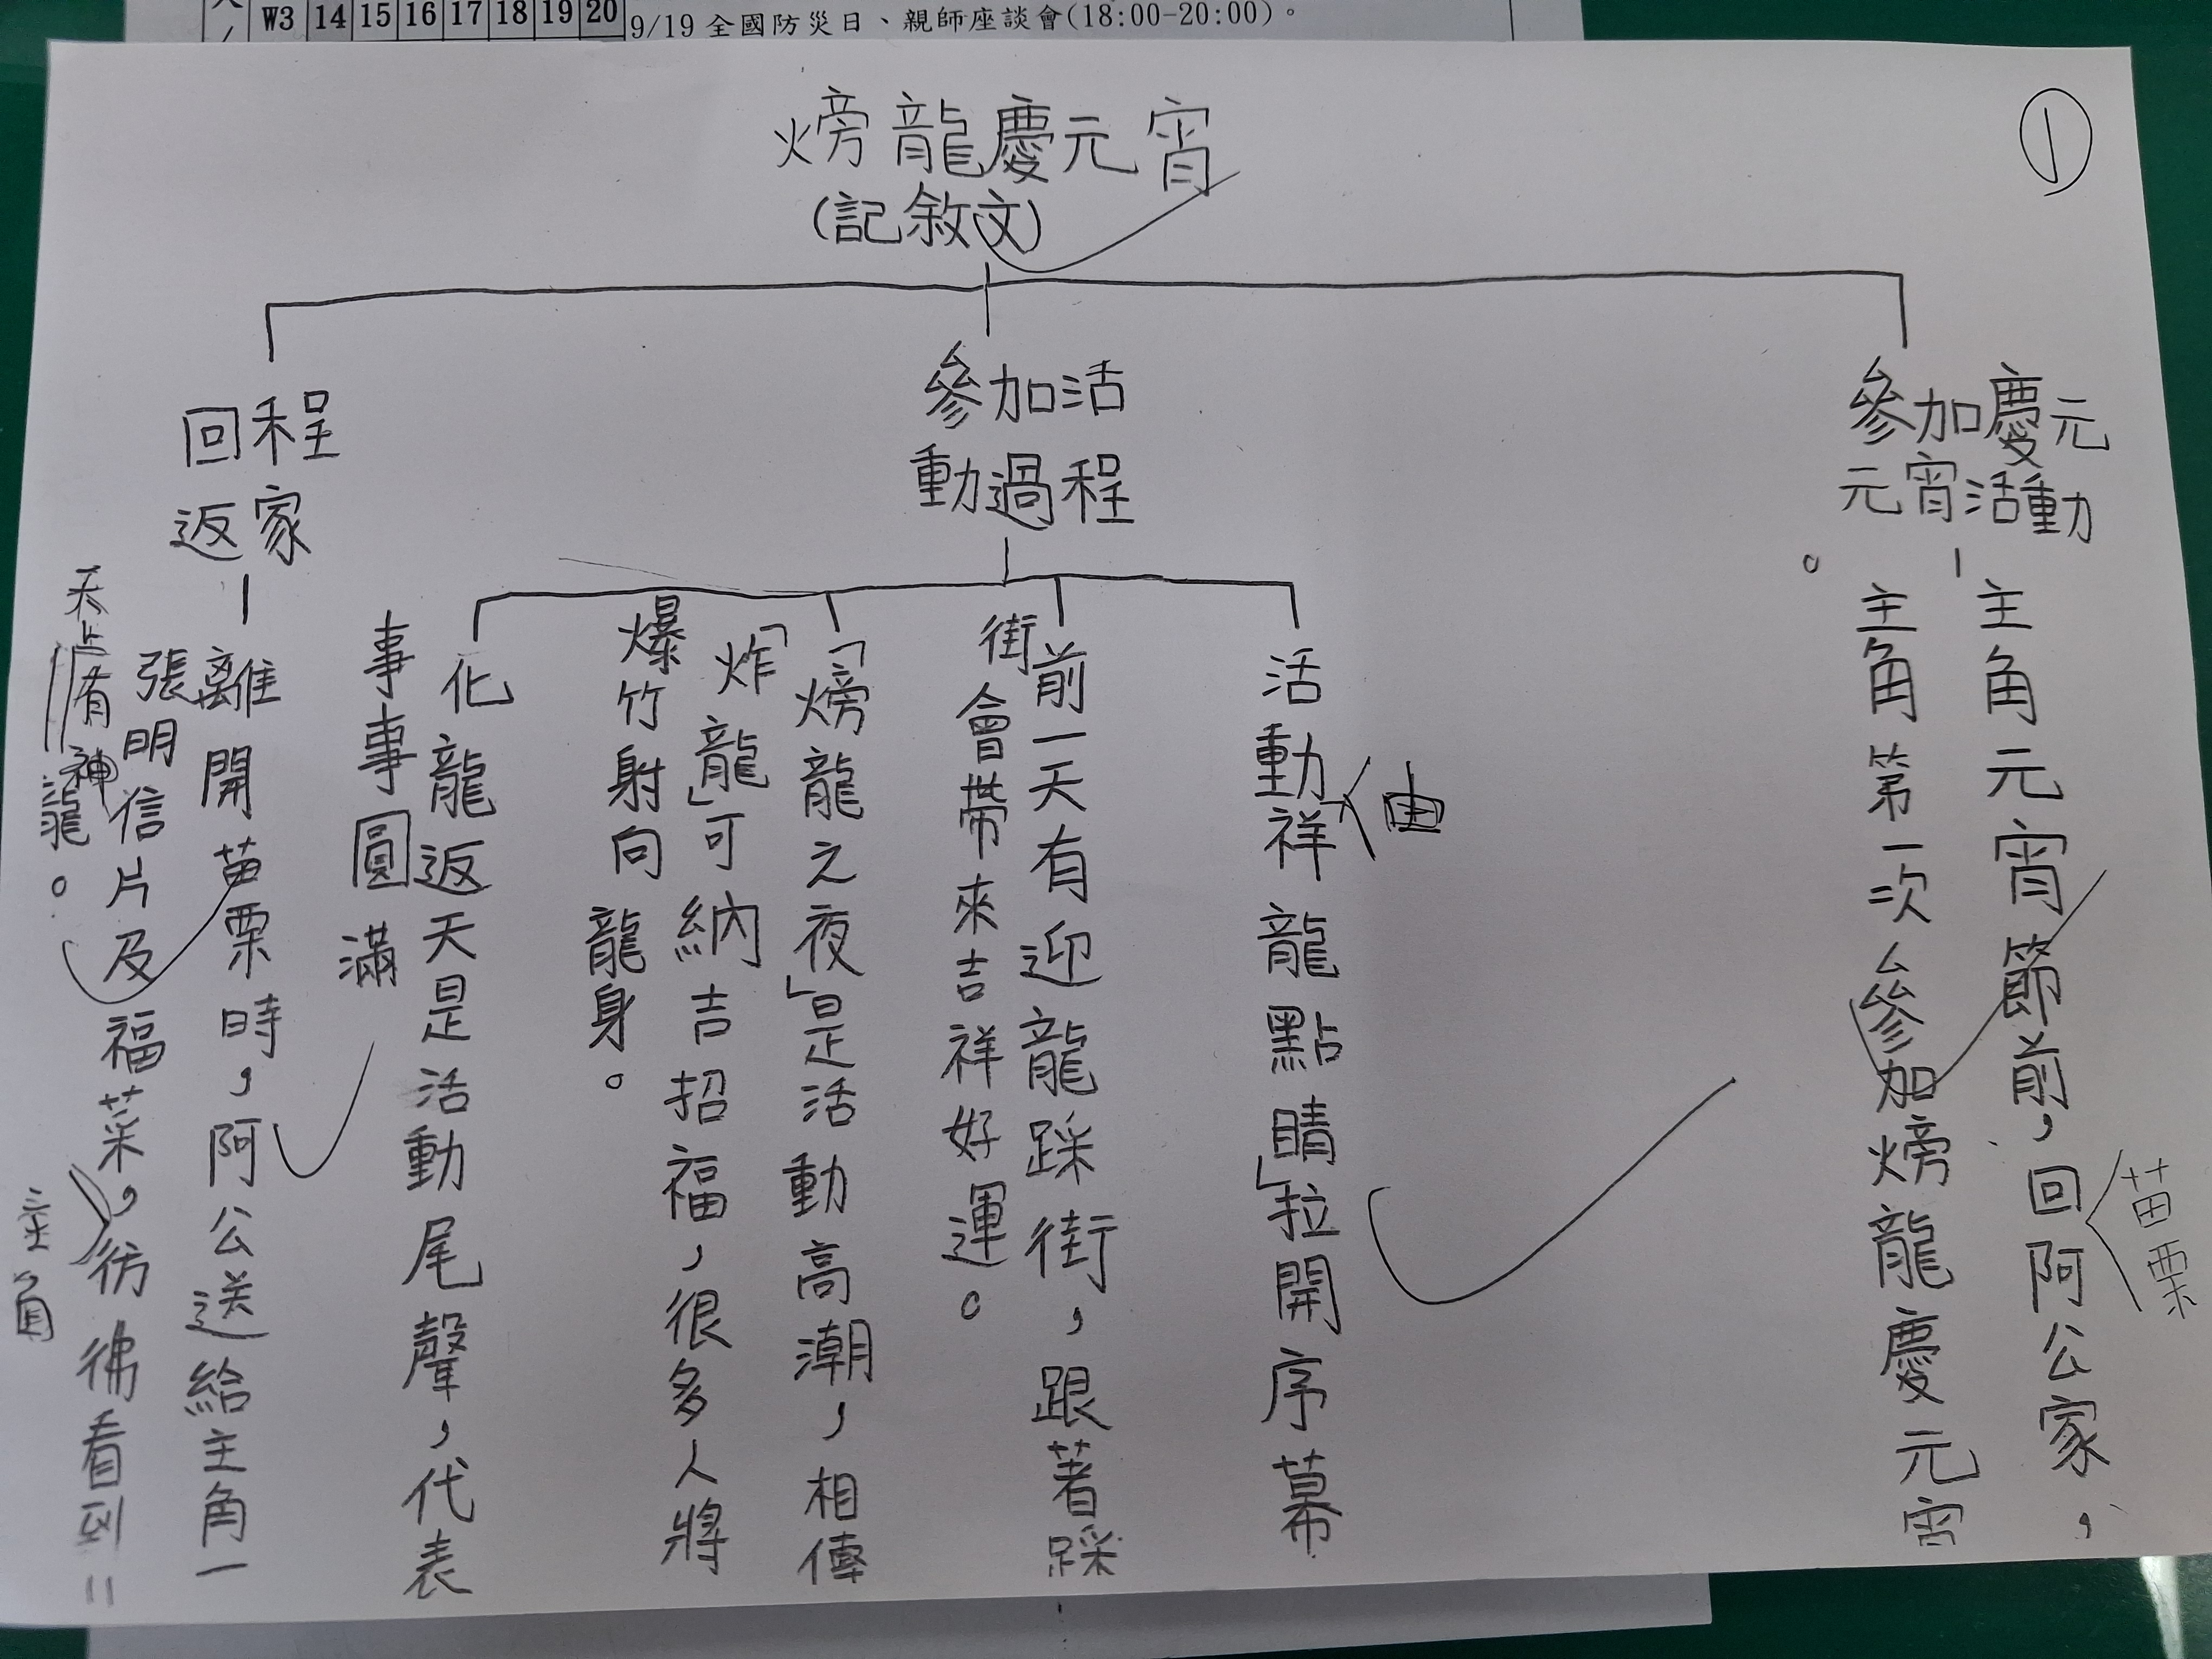 W3 14 15 16 17 18 19 20 9/19 全國防災日、親師座談會(18:00-20:00)。
①
㷫龍慶元宵
(記敘文)
參加慶元
元宵活動
主角元宵節前,回阿公家,
苗栗
主角第一次參加㷫龍慶元宵
。
參加活
動過程
活動祥龍點睛」拉開序幕
由
前一天有迎龍踩街,跟著踩
街會帶來吉祥好運。
「㷫龍之夜」是活動高潮,相傳
「炸龍」可納吉招福,很多人將
爆竹射向龍身。
化龍返天是活動尾聲,代表
事事圓滿
回程
返家
離開苗栗時,阿公送給主角一
張明信片及福菜,彷彿看到
主角
天上有神龍。